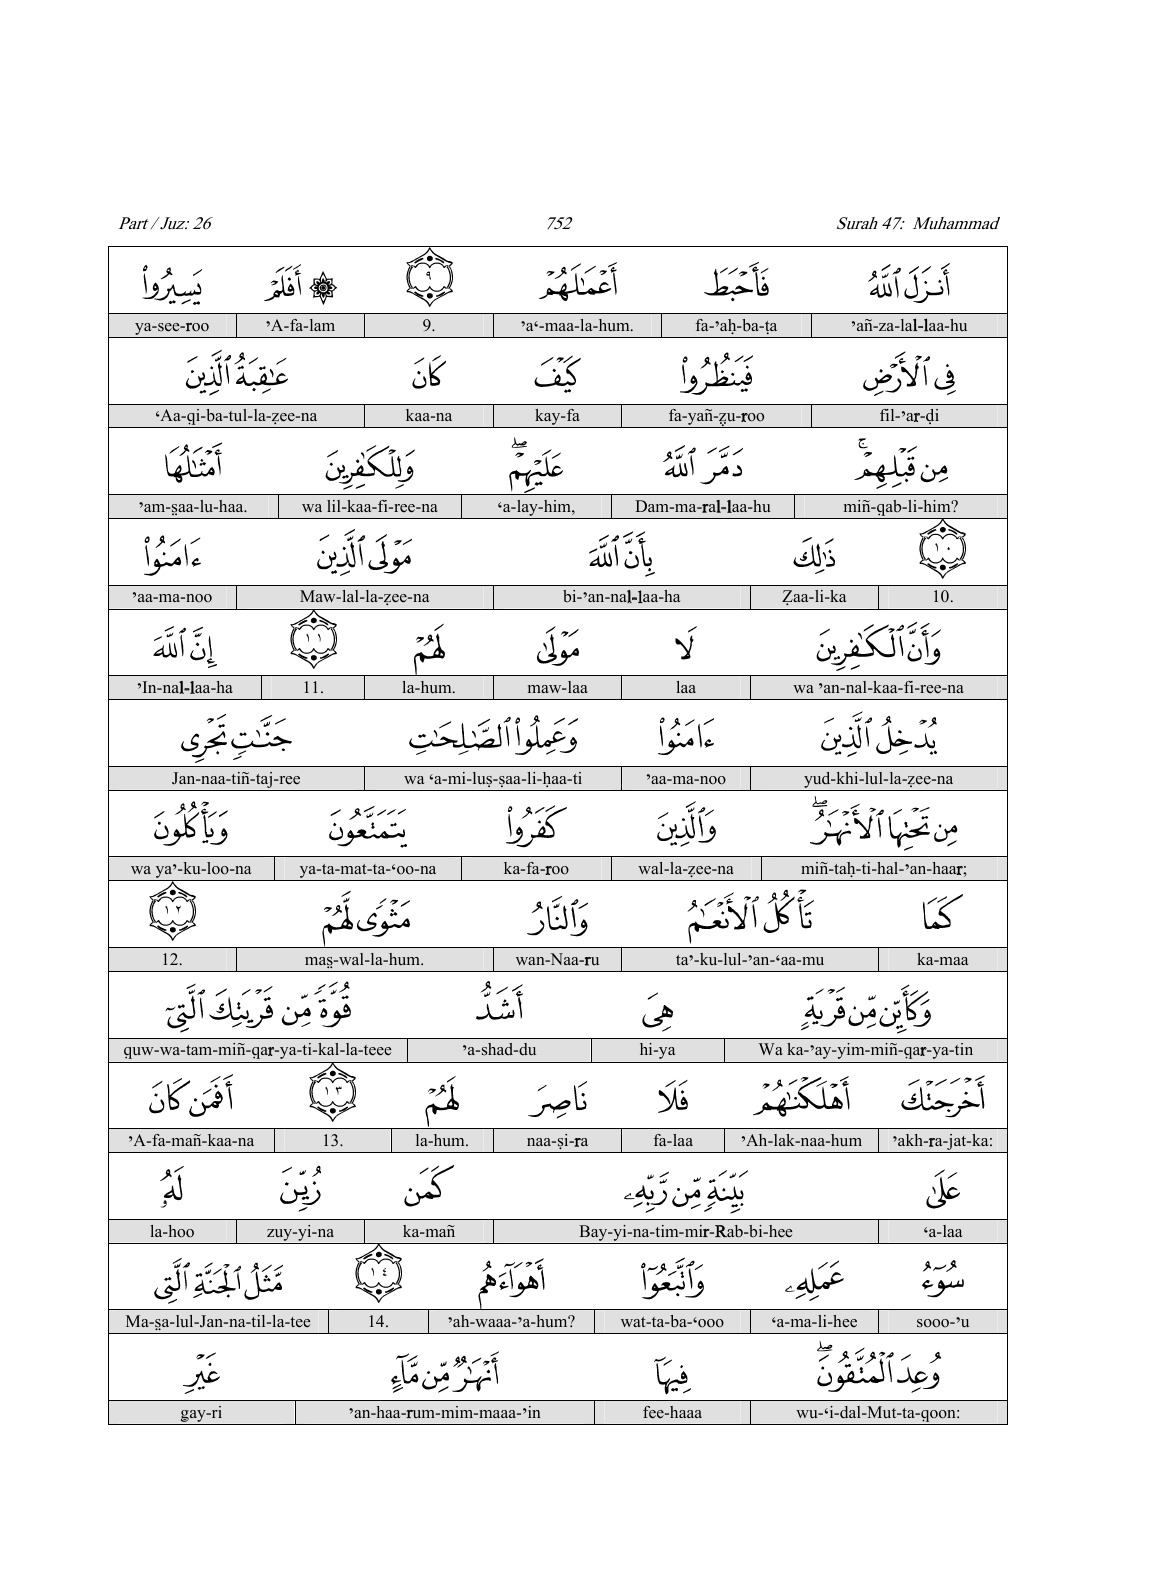 Part / Juz: 26 752 Surah 47: Muhammad
أَنزَلَ ٱللَّهُ فَأَحۡبَطَ أَعۡمَٰلَهُمۡ ٩ ۞ أَفَلَمۡ يَسِيرُواْ
ya-see-roo ’A-fa-lam 9. ’a‘-maa-la-hum. fa-’aḥ-ba-ṭa ’añ-za-lal-laa-hu
فِي ٱلۡأَرۡضِ فَيَنظُرُواْ كَيۡفَ كَانَ عَٰقِبَةُ ٱلَّذِينَ
‘Aa-qi-ba-tul-la-ẓee-na kaa-na kay-fa fa-yañ-ẓu-roo fil-’ar-ḍi
مِن قَبۡلِهِمۡۚ دَمَّرَ ٱللَّهُ عَلَيۡهِمۡۖ وَلِلۡكَٰفِرِينَ أَمۡثَٰلُهَا
’am-s̱aa-lu-haa. wa lil-kaa-fi-ree-na ‘a-lay-him, Dam-ma-ral-laa-hu miñ-qab-li-him?
١٠ ذَٰلِكَ بِأَنَّ ٱللَّهَ مَوۡلَى ٱلَّذِينَ ءَامَنُواْ
’aa-ma-noo Maw-lal-la-ẓee-na bi-’an-nal-laa-ha Ẓaa-li-ka 10.
وَأَنَّ ٱلۡكَٰفِرِينَ لَا مَوۡلَىٰ لَهُمۡ ١١ إِنَّ ٱللَّهَ
’In-nal-laa-ha 11. la-hum. maw-laa laa wa ’an-nal-kaa-fi-ree-na
يُدۡخِلُ ٱلَّذِينَ ءَامَنُواْ وَعَمِلُواْ ٱلصَّٰلِحَٰتِ جَنَّٰتٖ تَجۡرِي
Jan-naa-tiñ-taj-ree wa ‘a-mi-luṣ-ṣaa-li-ḥaa-ti ’aa-ma-noo yud-khi-lul-la-ẓee-na
مِن تَحۡتِهَا ٱلۡأَنۡهَٰرُۖ وَٱلَّذِينَ كَفَرُواْ يَتَمَتَّعُونَ وَيَأۡكُلُونَ
wa ya’-ku-loo-na ya-ta-mat-ta-‘oo-na ka-fa-roo wal-la-ẓee-na miñ-taḥ-ti-hal-’an-haar;
كَمَا تَأۡكُلُ ٱلۡأَنۡعَٰمُ وَٱلنَّارُ مَثۡوٗى لَّهُمۡ ١٢
12. mas̱-wal-la-hum. wan-Naa-ru ta’-ku-lul-’an-‘aa-mu ka-maa
وَكَأَيِّن مِّن قَرۡيَةٍ هِيَ أَشَدُّ قُوَّةٗ مِّن قَرۡيَتِكَ ٱلَّتِيٓ
quw-wa-tam-miñ-qar-ya-ti-kal-la-teee ’a-shad-du hi-ya Wa ka-’ay-yim-miñ-qar-ya-tin
أَخۡرَجَتۡكَ أَهۡلَكۡنَٰهُمۡ فَلَا نَاصِرَ لَهُمۡ ١٣ أَفَمَن كَانَ
’A-fa-mañ-kaa-na 13. la-hum. naa-ṣi-ra fa-laa ’Ah-lak-naa-hum ’akh-ra-jat-ka:
عَلَىٰ بَيِّنَةٖ مِّن رَّبِّهِۦ كَمَن زُيِّنَ لَهُۥ
la-hoo zuy-yi-na ka-mañ Bay-yi-na-tim-mir-Rab-bi-hee ‘a-laa
سُوٓءُ عَمَلِهِۦ وَٱتَّبَعُوٓاْ أَهۡوَآءَهُم ١٤ مَّثَلُ ٱلۡجَنَّةِ ٱلَّتِي
Ma-s̱a-lul-Jan-na-til-la-tee 14. ’ah-waaa-’a-hum? wat-ta-ba-‘ooo ‘a-ma-li-hee sooo-’u
وُعِدَ ٱلۡمُتَّقُونَۖ فِيهَآ أَنۡهَٰرٞ مِّن مَّآءٍ غَيۡرِ
gay-ri ’an-haa-rum-mim-maaa-’in fee-haaa wu-‘i-dal-Mut-ta-qoon: